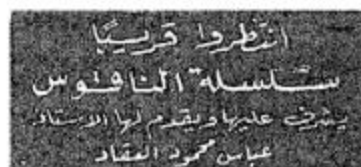 انتظروا قريبًا
سلسلة الناقوس
يشرف عليها ويقدم لها الاستاذ
عباس محمود العقاد